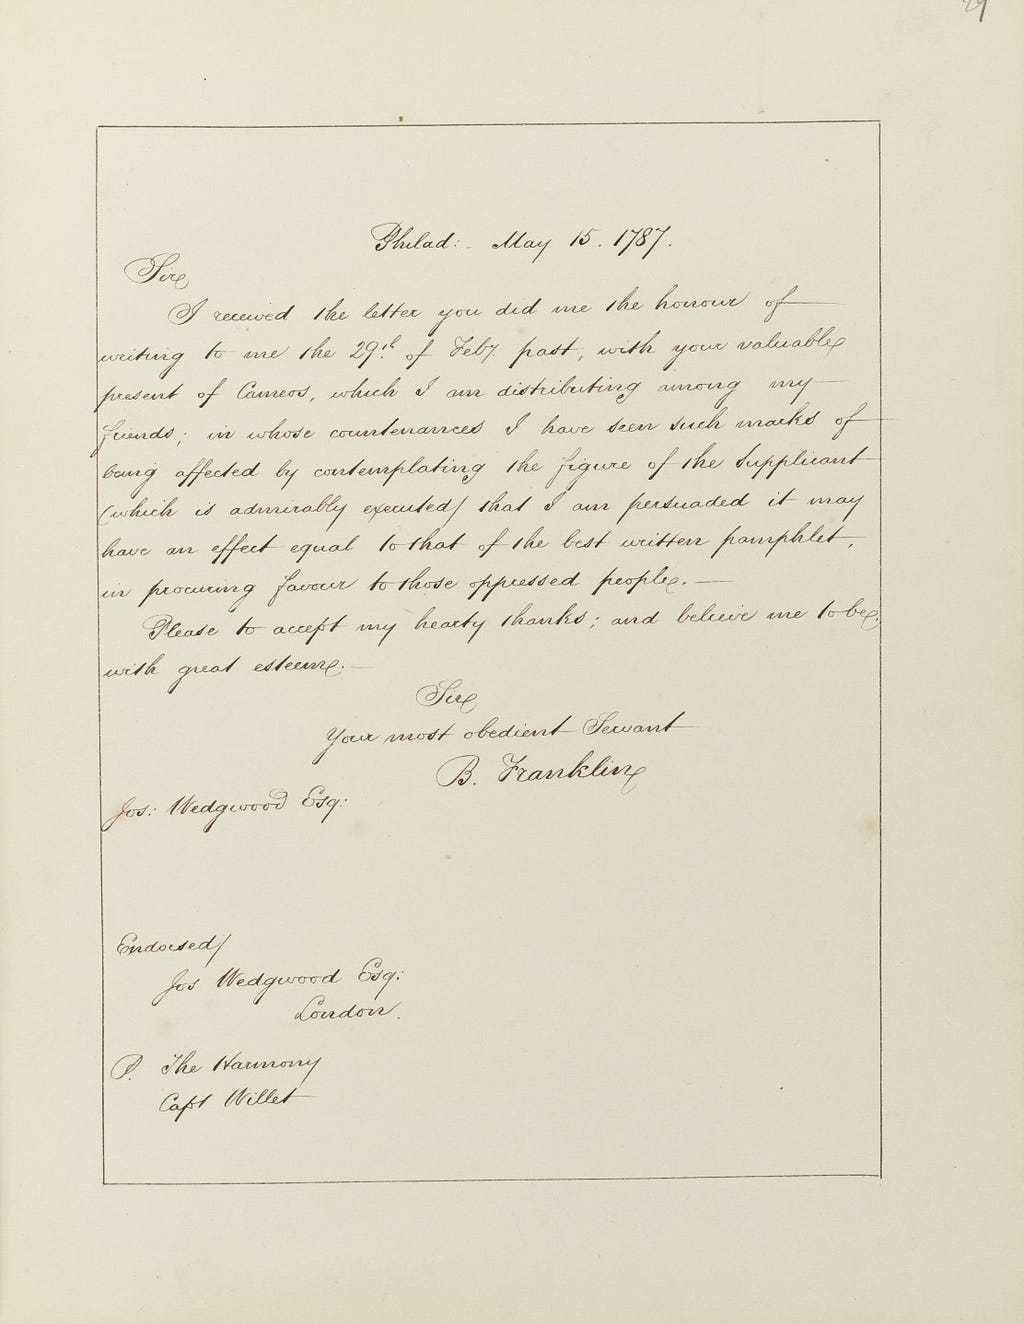 29
Philad: - May 15. 1787.
Sir
I received the letter you did me the honour of
writing to me the 29.th of Feby. past, with your valuable
present of Cameos, which I am distributing among my
friends; in whose countenances I have seen such marks of
being affected by contemplating the figure of the Supplicant
(which is admirably executed) that I am persuaded it may
have an effect equal to that of the best written pamphlet,
in procuring favour to those oppressed people. —
Please to accept my hearty thanks; and believe me to be,
with great esteem. —
Sir
Your most obedient Servant
B. Franklin
Jos: Wedgwood Esq:
Endorsed/
Jos Wedgwood Esq:
London.
P. The Harmony
Capt Willet